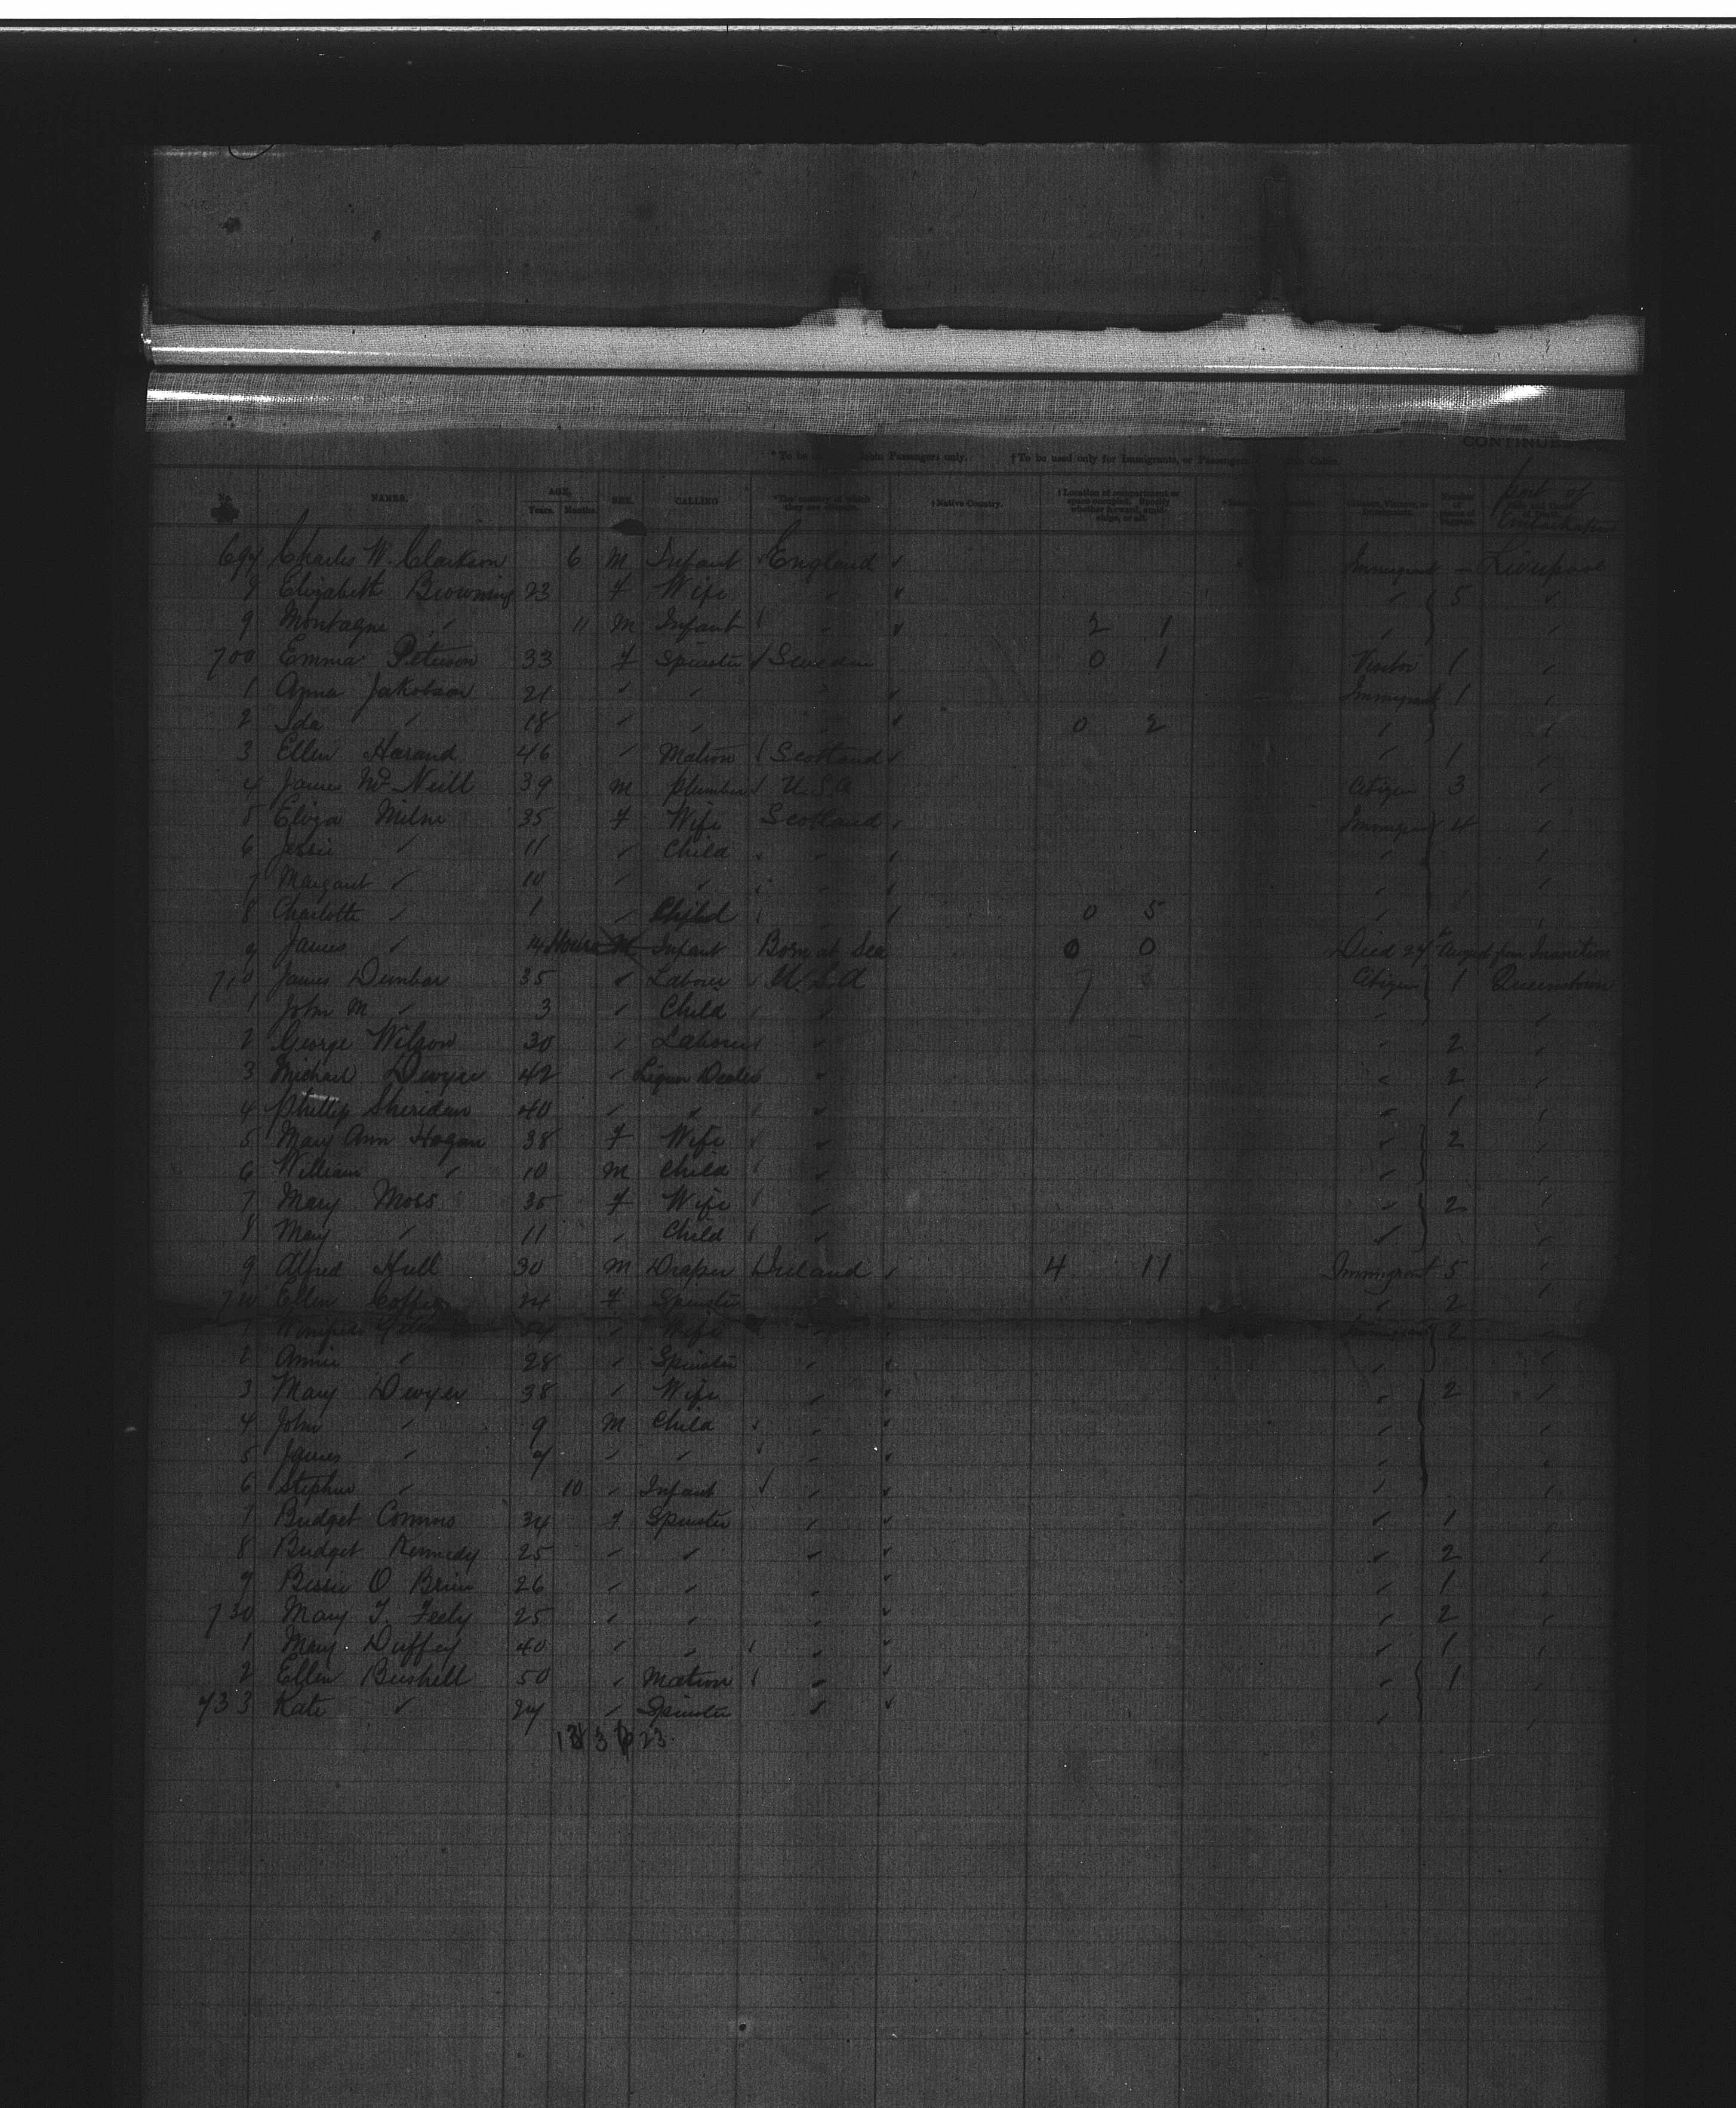 CONTINUE
* To be Cabin Passengers only. † To be used only for Immigrants, or Passengers Cabin.
No. NAMES. AGE, Years. Months. SEX. CALLING *The country of which they are citizens. †Native Country. †Location of compartment or space occupied. Specify whether forward, amidships, or aft. Port of Embarkation
697 Charles W. Clarkson 6 M Infant England Immigrant - Liverpool
8 Elizabeth Browning 23 F Wife " " 5 "
9 Montague " 11 M Infant " 2 1 " "
700 Emma Peterson 33 F Spinster Sweden 0 1 Visitor 1 "
1 Anna Jakobson 21 " " " Immigrant 1 "
2 Ida " 18 " " 0 2 " "
3 Ellen Harand 46 " Matron Scotland " 1 "
4 James McNeill 39 M Plumber U.S.A Citizen 3 "
5 Eliza Milne 35 F Wife Scotland Immigrant 4 "
6 Jessie " 11 " Child " " "
7 Margaret " 10 " " " " "
8 Charlotte " 1 " Child 0 5 " "
9 James " 14 Hours M Infant Born at Sea 0 0 Died 24th August from Inanition
710 James Dunbar 35 " Labourer U.S.A Citizen 1 Queenstown
1 John M " 3 " Child " " "
2 George Wilson 30 " Labourer " " 2 "
3 Michael Dwyer 42 " Liquor Dealer " " 2 "
4 Phillip Sheridan 40 " " " " 1 "
5 Mary Ann Hogan 38 F Wife " " 2 "
6 William " 10 M Child " " "
7 Mary Moss 35 F Wife " " 2 "
8 Mary " 11 " Child " " "
9 Alfred Hull 30 M Draper Ireland 4 11 Immigrant 5 "
720 Ellen Coffey 24 F Spinster " 2 "
1 Winifred 54 " Wife " Immigrant 2 "
2 Annie " 28 " Spinster " " "
3 Mary Dwyer 38 " Wife " " 2 "
4 John " 9 M Child " " "
5 James " 7 " " " " "
6 Stephen " 10 " Infant " " "
7 Bridget Commo 34 F Spinster " " 1 "
8 Bridget Kennedy 25 " " " " 2 "
9 Bessie O Brien 26 " " " " 1 "
730 Mary T. Feely 25 " " " " 2 "
1 Mary Duffey 40 " " " " 1 "
2 Ellen Bushell 50 " Matron " " 1 "
733 Kate " 24 " Spinster " " "